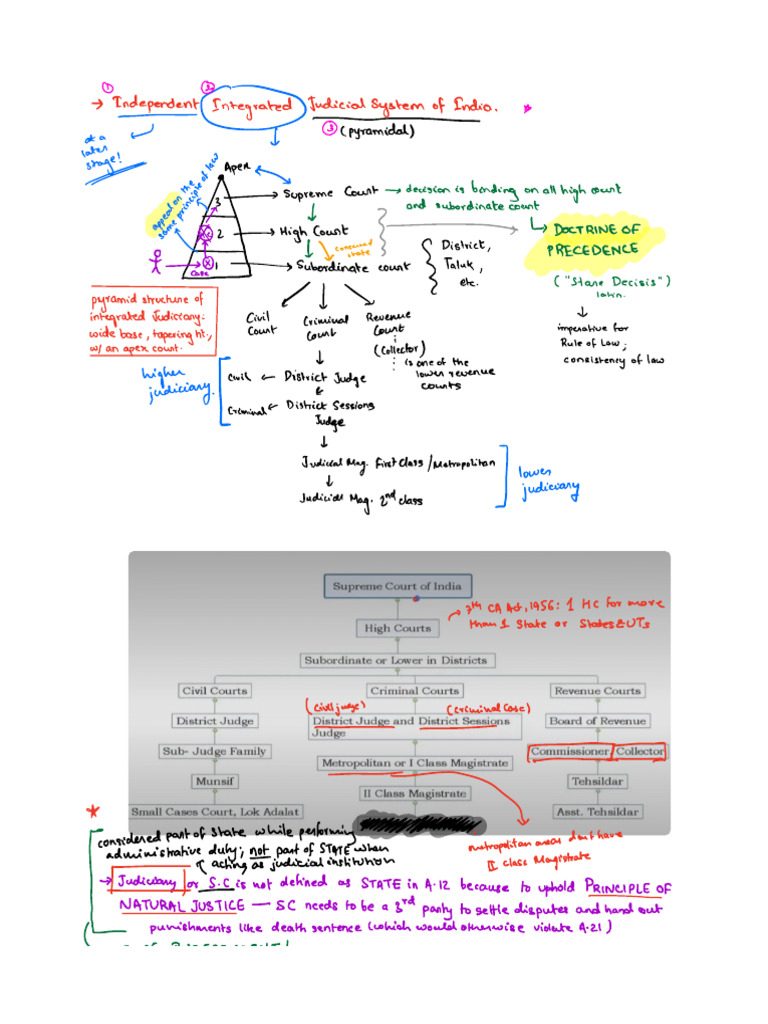 ① ②
→ Independent Integrated Judicial System of India. *
③ (pyramidal)
at a
later
stage!
Apex
appeal on the
same principle of law
3
2
1
case
Supreme Court → decision is binding on all high court
and subordinate court
↳ DOCTRINE OF
PRECEDENCE
("Stare Decisis")
latin.
↓
imperative for
Rule of Law;
consistency of law
High Court
concerned
state
Subordinate court
District,
Taluk,
etc.
pyramid structure of
integrated Judiciary:
wide base, tapering ht.,
w/ an apex court.
Civil
Court
Criminal
Court
Revenue
Court
(Collector)
is one of the
lower revenue
courts
higher
judiciary.
Civil ← District Judge
Criminal ← District Sessions
Judge
↓
Judicial Mag. First Class / Metropolitan
↓
Judicial Mag. 2nd class
lower
judiciary
Supreme Court of India
→ 7th CA Act, 1956: 1 HC for more
than 1 State or States & UTs
High Courts
Subordinate or Lower in Districts
Civil Courts Criminal Courts Revenue Courts
(Civil judge) (Criminal case)
District Judge District Judge and District Sessions Judge Board of Revenue
Sub- Judge Family Metropolitan or I Class Magistrate Commissioner Collector
Munsif II Class Magistrate Tehsildar
Small Cases Court, Lok Adalat Asst. Tehsildar
metropolitan areas don't have
II class Magistrate
*
considered part of State while performing
administrative duty; not part of STATE when
acting as judicial institution
→ Judiciary or S.C is not defined as STATE in A.12 because to uphold PRINCIPLE OF
NATURAL JUSTICE — SC needs to be a 3rd party to settle disputes and hand out
punishments like death sentence (which would otherwise violate A.21)